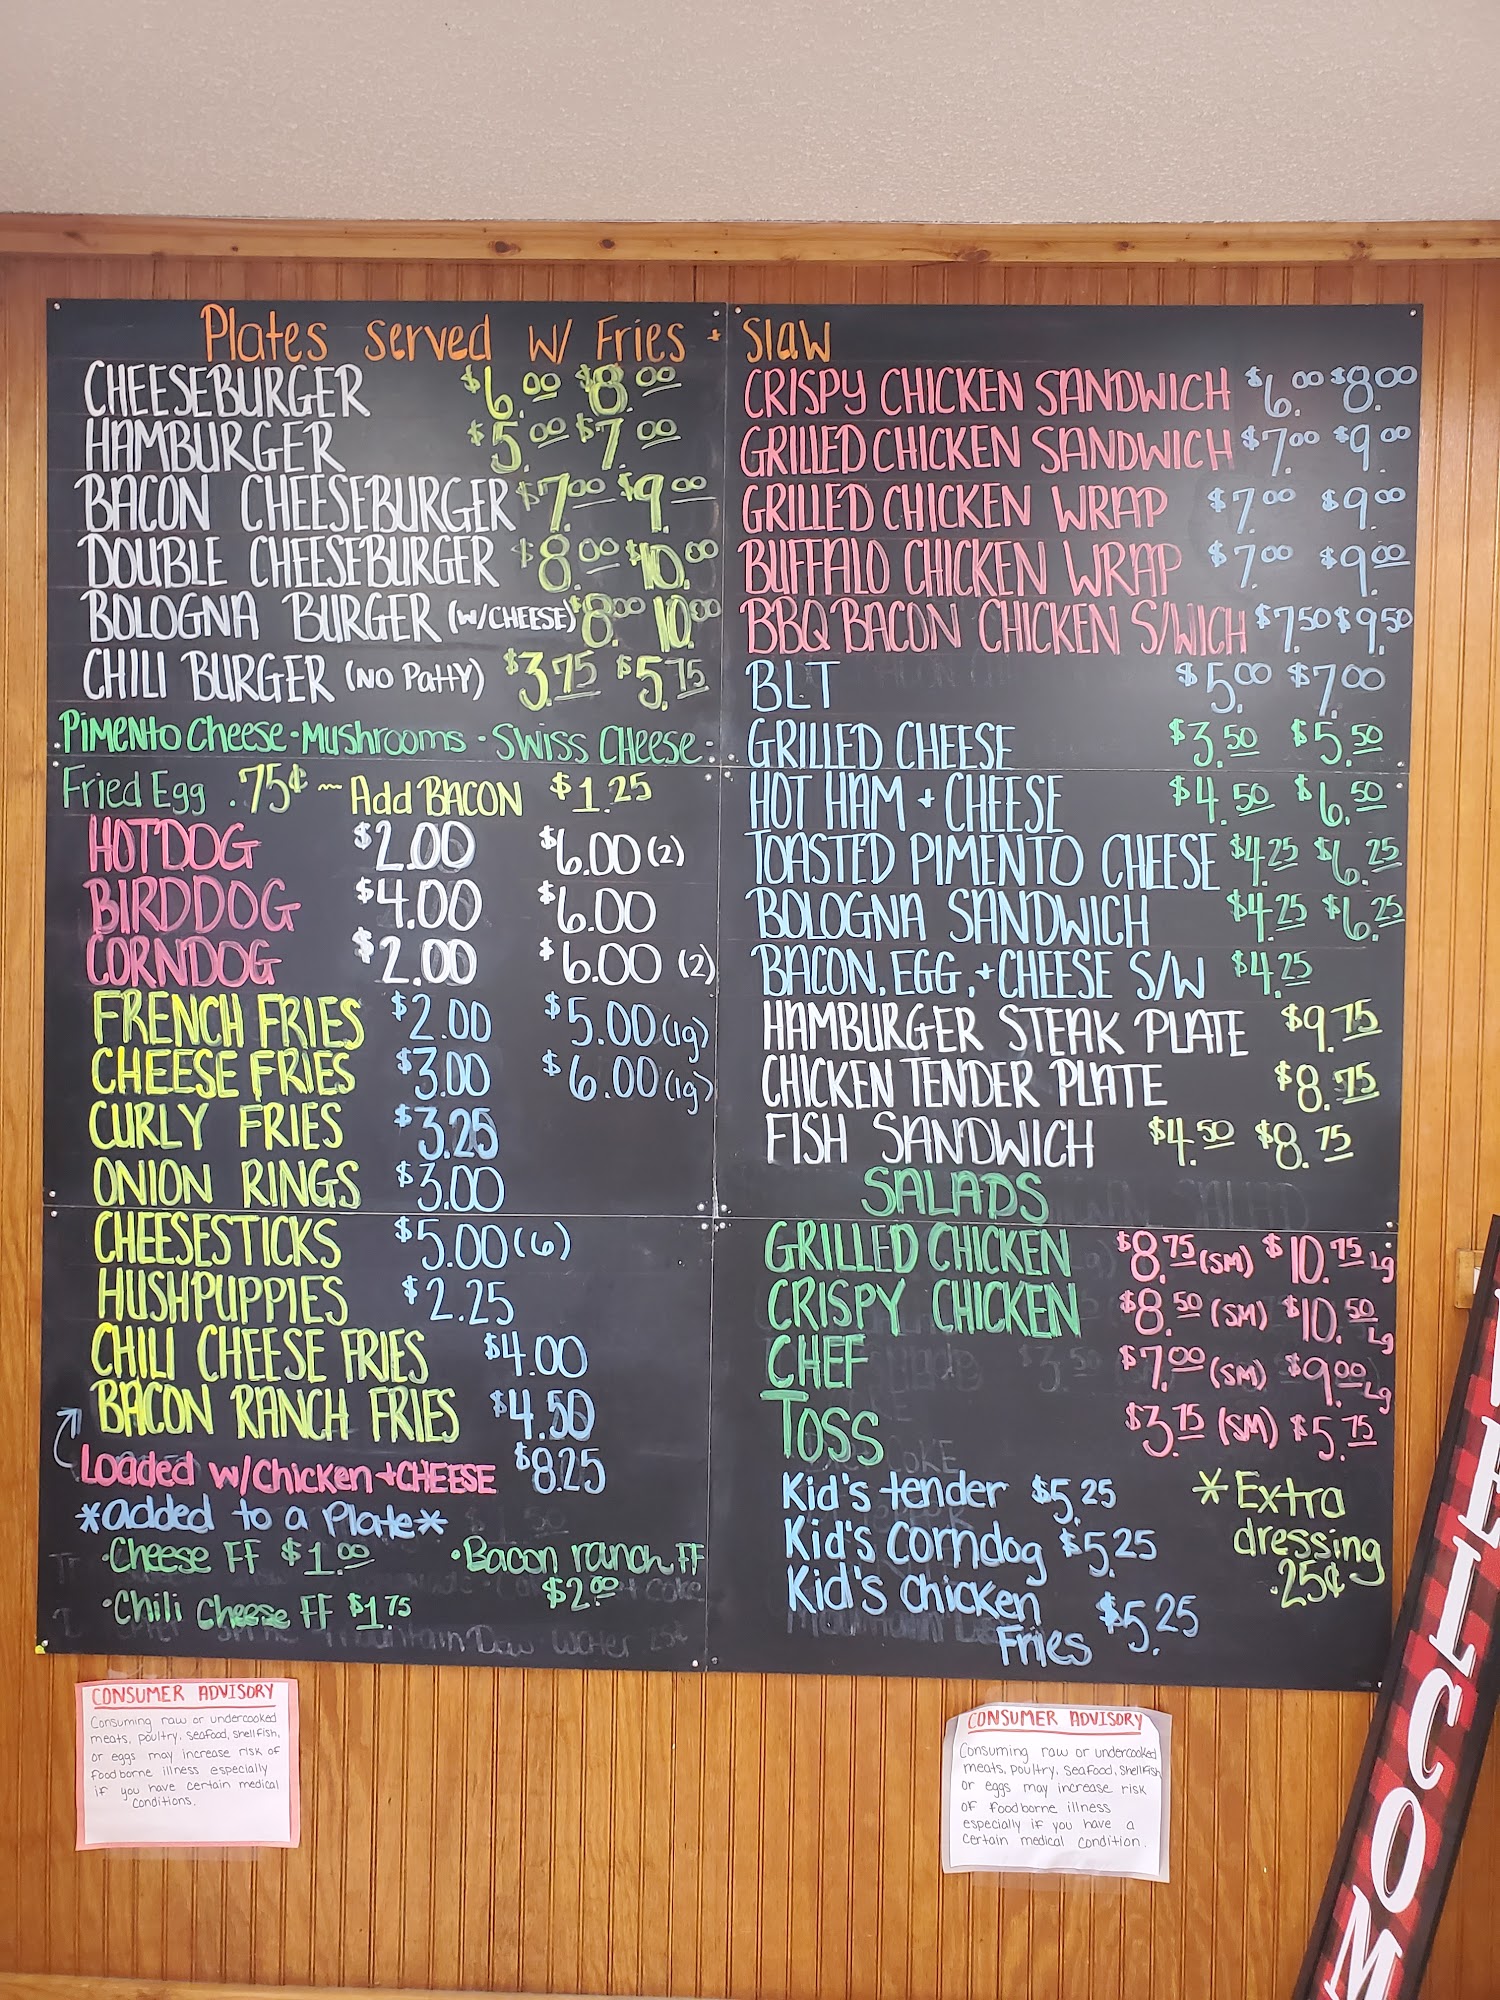 Plates served w/ Fries + Slaw
CHEESEBURGER $6.00 $8.00
HAMBURGER $5.00 $7.00
BACON CHEESEBURGER $7.00 $9.00
DOUBLE CHEESEBURGER $8.00 $10.00
BOLOGNA BURGER (W/CHEESE) $8.00 10.00
CHILI BURGER (NO PATTY) $3.75 $5.75
Pimento Cheese · Mushrooms · Swiss Cheese ·
Fried Egg .75¢ ~ Add BACON $1.25
HOTDOG $2.00 $6.00 (2)
BIRDDOG $4.00 $6.00
CORNDOG $2.00 $6.00 (2)
FRENCH FRIES $2.00 $5.00 (lg)
CHEESE FRIES $3.00 $6.00 (lg)
CURLY FRIES $3.25
ONION RINGS $3.00
CHEESESTICKS $5.00 (6)
HUSHPUPPIES $2.25
CHILI CHEESE FRIES $4.00
BACON RANCH FRIES $4.50
Loaded w/Chicken + CHEESE $8.25
*added to a Plate*
· Cheese FF $1.00 · Bacon ranch FF
$2.00
· Chili Cheese FF $1.75
CRISPY CHICKEN SANDWICH $6.00 $8.00
GRILLED CHICKEN SANDWICH $7.00 $9.00
GRILLED CHICKEN WRAP $7.00 $9.00
BUFFALO CHICKEN WRAP $7.00 $9.00
BBQ BACON CHICKEN S/WICH $7.50 $9.50
BLT $5.00 $7.00
GRILLED CHEESE $3.50 $5.50
HOT HAM + CHEESE $4.50 $6.50
TOASTED PIMENTO CHEESE $4.25 $6.25
BOLOGNA SANDWICH $4.25 $6.25
BACON, EGG, + CHEESE S/W $4.25
HAMBURGER STEAK PLATE $9.75
CHICKEN TENDER PLATE $8.75
FISH SANDWICH $4.50 $8.75
SALADS
GRILLED CHICKEN $8.75 (SM) $10.75 Lg
CRISPY CHICKEN $8.50 (SM) $10.50 Lg
CHEF $7.00 (SM) $9.00 Lg
TOSS $3.75 (SM) $5.75
Kid's tender $5.25
Kid's Corndog $5.25
Kid's Chicken
Fries $5.25
* Extra
dressing
.25¢
CONSUMER ADVISORY
Consuming raw or undercooked
meats, poultry, seafood, shellfish,
or eggs may increase risk of
foodborne illness especially
if you have certain medical
conditions.
CONSUMER ADVISORY
Consuming raw or undercooked
meats, poultry, seafood, shellfish
or eggs may increase risk
of foodborne illness
especially if you have a
certain medical condition.
WELCOM